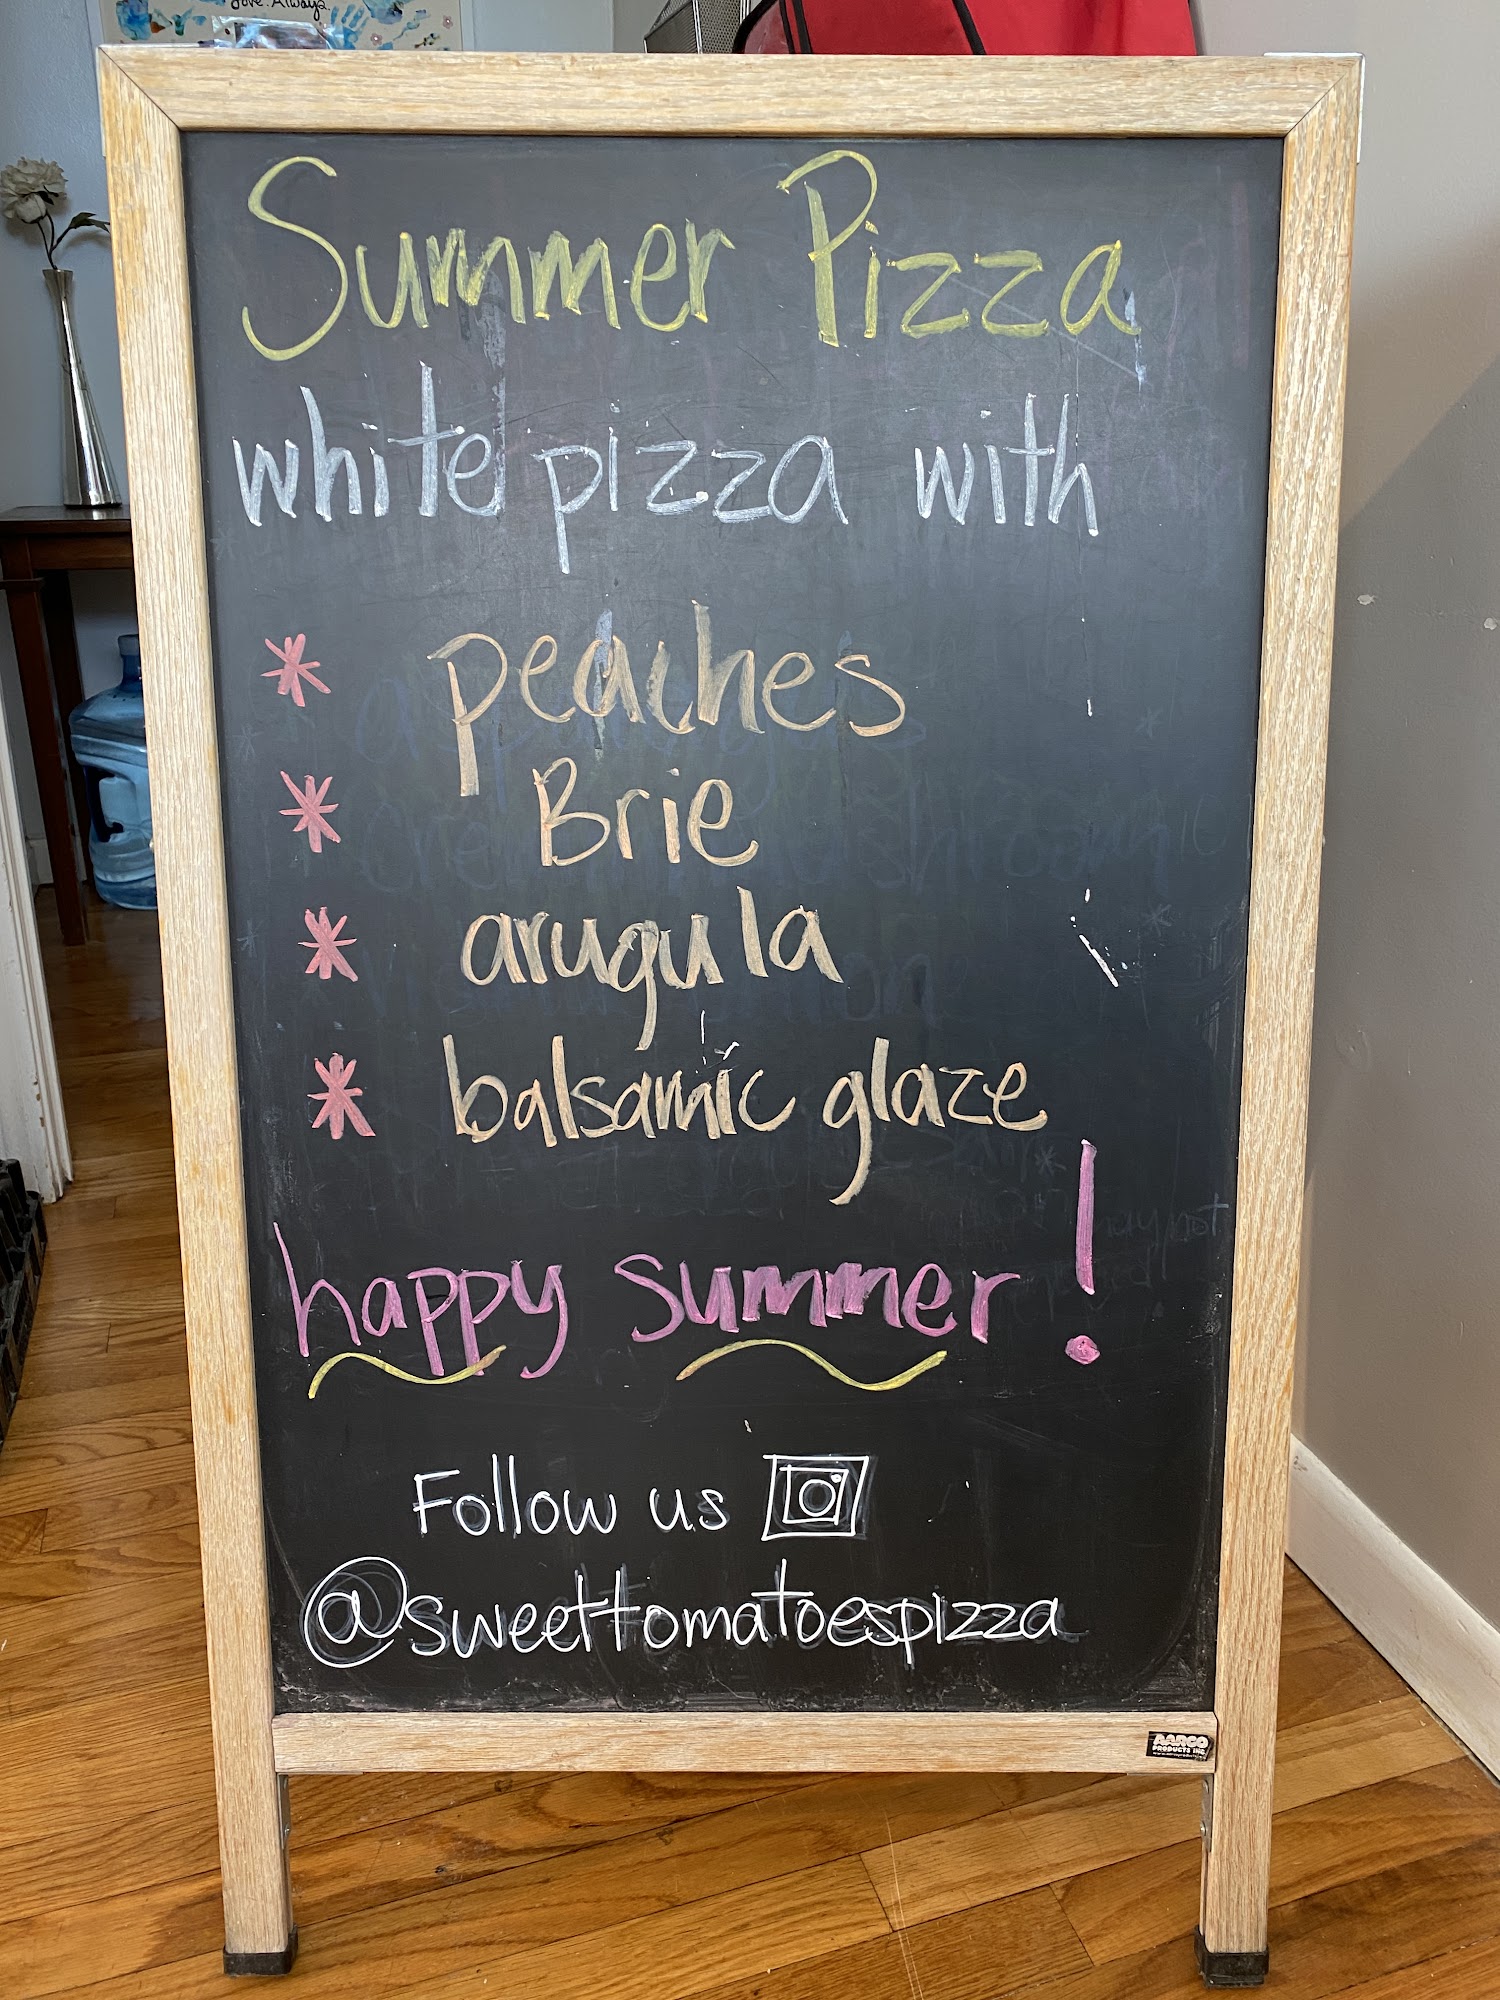 love. Always.
Summer Pizza
white pizza with
* peaches
* Brie
* arugula
* balsamic glaze
happy summer!
Follow us
@sweettomatoespizza
AARCO
PRODUCTS INC.